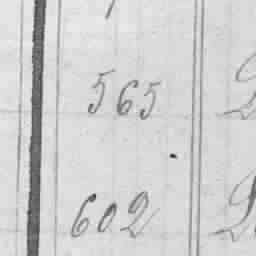 565
602